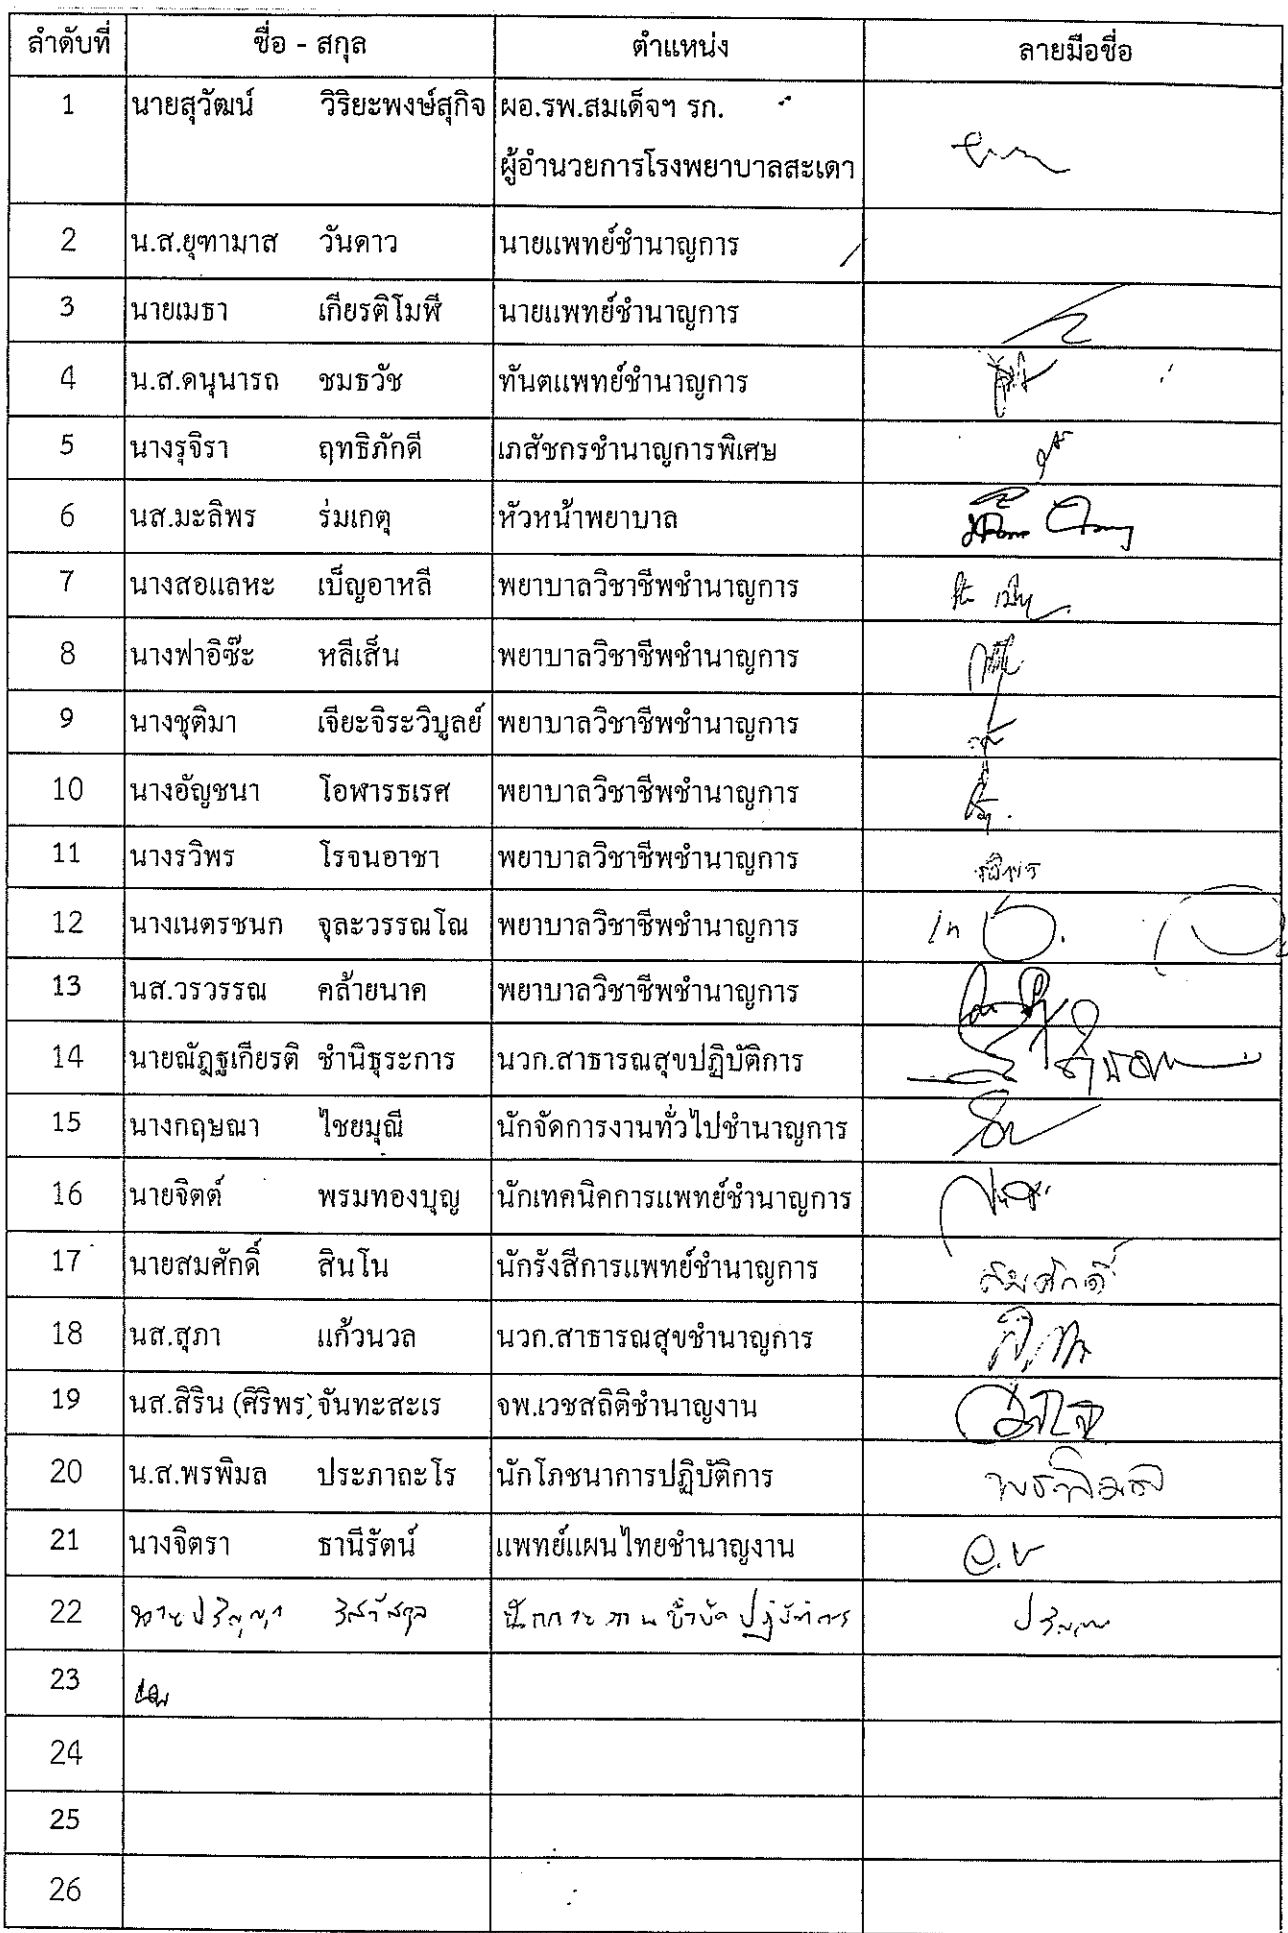 ลำดับที่ ชื่อ - สกุล ตำแหน่ง ลายมือชื่อ
1 นายสุวัฒน์ วิริยะพงษ์สุกิจ ผอ.รพ.สมเด็จฯ รก.
ผู้อำนวยการโรงพยาบาลสะเดา
2 น.ส.ยุฑามาส วันดาว นายแพทย์ชำนาญการ
3 นายเมธา เกียรติโมฬี นายแพทย์ชำนาญการ
4 น.ส.คนุนารถ ชมธวัช ทันตแพทย์ชำนาญการ
5 นางรุจิรา ฤทธิภักดี เภสัชกรชำนาญการพิเศษ
6 นส.มะลิพร ร่มเกตุ หัวหน้าพยาบาล
7 นางสอแลหะ เบ็ญอาหลี พยาบาลวิชาชีพชำนาญการ
8 นางฟาอิซ๊ะ หลีเส็น พยาบาลวิชาชีพชำนาญการ
9 นางชุติมา เจียะจิระวิบูลย์ พยาบาลวิชาชีพชำนาญการ
10 นางอัญชนา โอฬารธเรศ พยาบาลวิชาชีพชำนาญการ
11 นางรวิพร โรจนอาชา พยาบาลวิชาชีพชำนาญการ รวิพร
12 นางเนตรชนก จุละวรรณโณ พยาบาลวิชาชีพชำนาญการ
13 นส.วรวรรณ คล้ายนาค พยาบาลวิชาชีพชำนาญการ
14 นายณัฏฐเกียรติ ชำนิธุระการ นวก.สาธารณสุขปฏิบัติการ
15 นางกฤษณา ไชยมุณี นักจัดการงานทั่วไปชำนาญการ
16 นายจิตต์ พรมทองบุญ นักเทคนิคการแพทย์ชำนาญการ
17 นายสมศักดิ์ สินโน นักรังสีการแพทย์ชำนาญการ สมศักดิ์
18 นส.สุภา แก้วนวล นวก.สาธารณสุขชำนาญการ
19 นส.สิริน (ศิริพร) จันทะสะเร จพ.เวชสถิติชำนาญงาน
20 น.ส.พรพิมล ประภาถะโร นักโภชนาการปฏิบัติการ พรพิมล
21 นางจิตรา ธานีรัตน์ แพทย์แผนไทยชำนาญงาน
22 นายปริญญา นักกายภาพบำบัดปฏิบัติการ ปริญญา
23
24
25
26